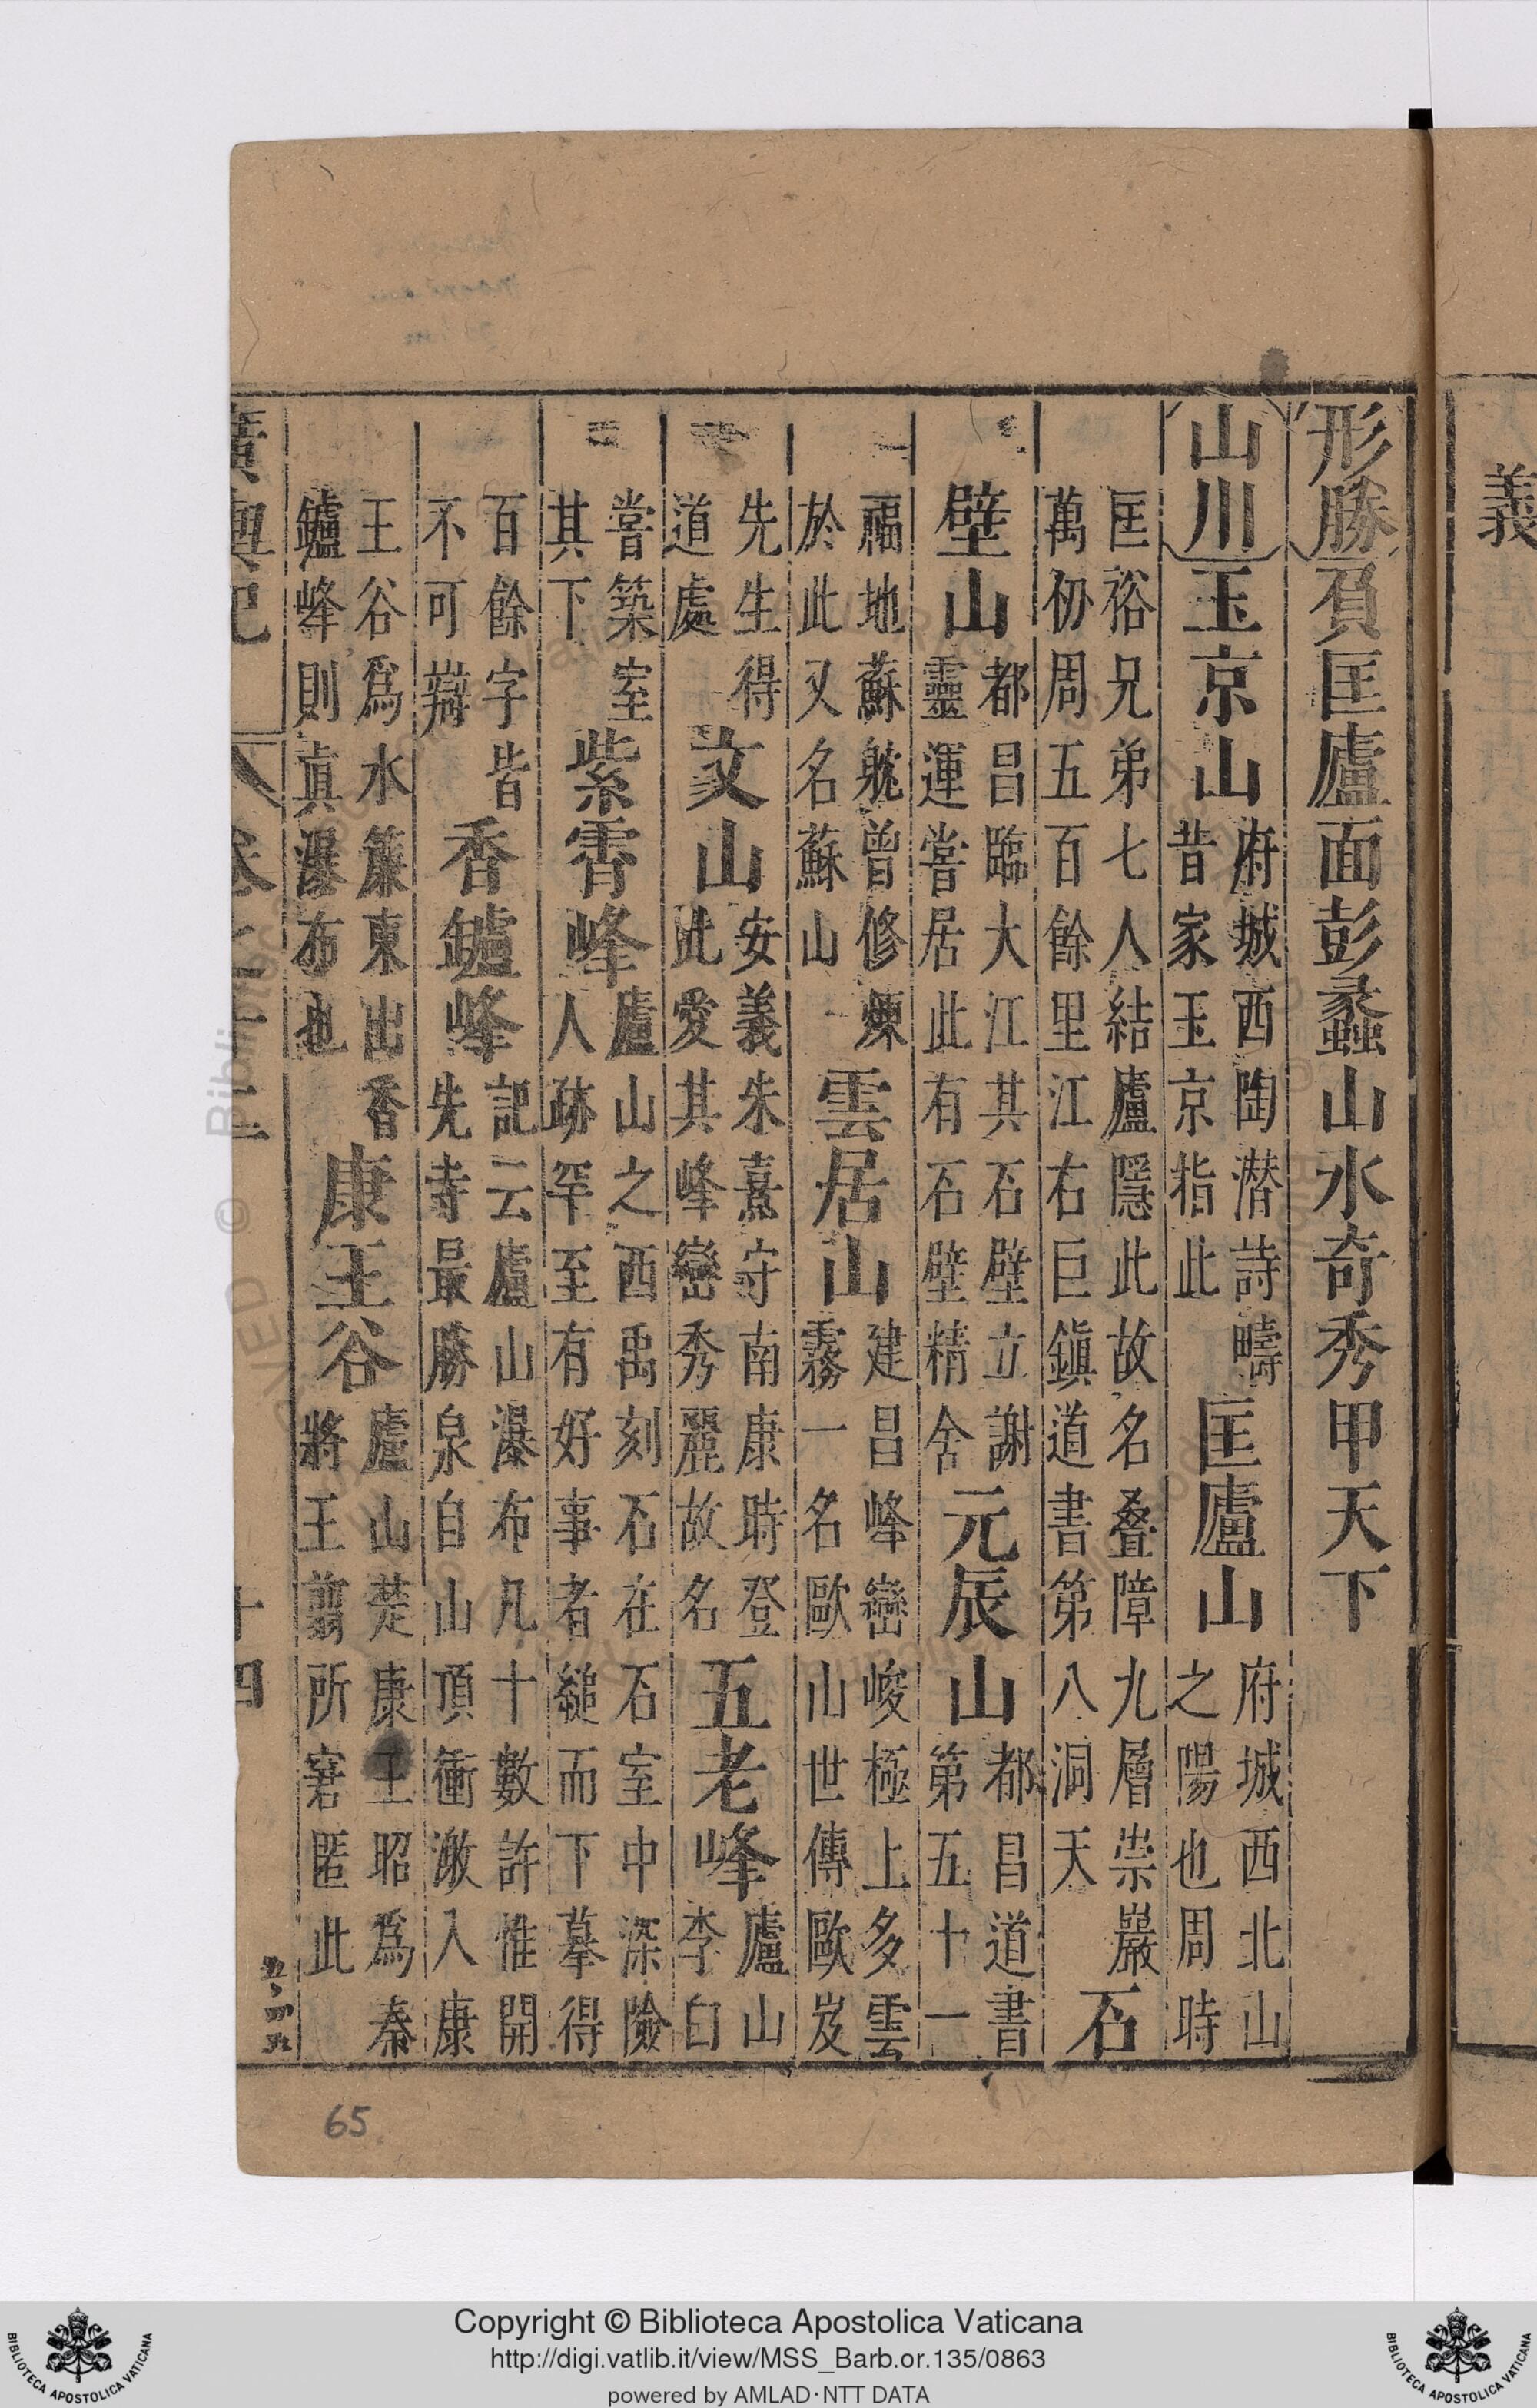 義
形勝負匡廬面彭蠡山水奇秀甲天下
山川玉京山府城西陶潛詩疇
昔家玉京指此匡廬山府城西北山
之陽也周時
匡裕兄弟七人結廬隱此故名叠障九層崇巖
萬仞周五百餘里江右巨鎭道書第八洞天石
壁山都昌臨大江其石壁立謝
靈運嘗居此有石壁精舍元辰山都昌道書
第五十一
福地蘇躭曾修煉
於此又名蘇山雲居山建昌峰巒峻極上多雲
霧一名歐山世傳歐岌
先生得
道處文山安義朱熹守南康時登
此愛其峰巒秀麗故名五老峰廬山
李白
嘗築室
其下紫霄峰廬山之西禹刻石在石室中深險
人跡罕至有好事者縋而下摹得
百餘字皆
不可辯香鑪峰記云廬山瀑布凡十數許惟開
先寺最勝泉自山頂衝激入康
王谷爲水簾東出香
鑪峰則眞瀑布也康王谷廬山楚康王昭爲秦
將王翦所窘匿此
廣輿記
卷之十二
十四
65
Copyright © Biblioteca Apostolica Vaticana
http://digi.vatlib.it/view/MSS_Barb.or.135/0863
powered by AMLAD·NTT DATA
BIBLIOTECA APOSTOLICA VATICANA
BIBLIOTECA APOSTOLICA VATICANA